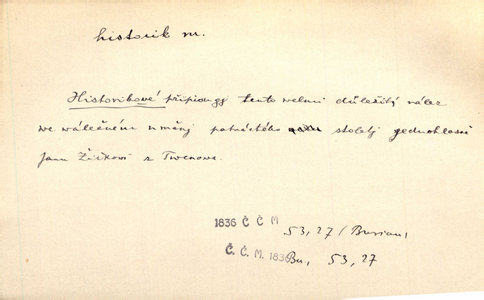 historik m.
Historikové připisugj tento welmi důležitý nález
we wálečném uměnj patnáctého stoletj gednohlasně
Janu Žižkowi z Trocnowa.
1836 Č Č M 53,27 (Burian,
Č. Č. M. 1836 Bu, 53, 27